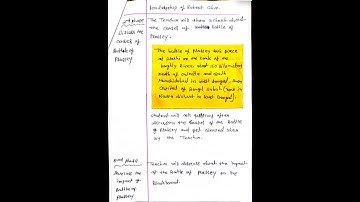 leadership of Robert Clive.
2nd phase
Discuss the
causes of
Battle of
Plassey
The Teacher will show a chart about
the causes of battle of
Plassey.
The battle of Plassey took place
at on the bank of the
hoogly River, about 150 kilometres
north of calcutta and south
Murshidabad in West Bengal, then
capital of Bengal (now in
Nadia district in West Bengal).
student will ask question after
discussion the causes of the battle
of Plassey and get cleared idea
by the Teacher.
3rd phase
Discuss the
impact of
battle of
Plassey
Teacher will discuss about the impact
of the battle of Plassey on the
Blackboard.